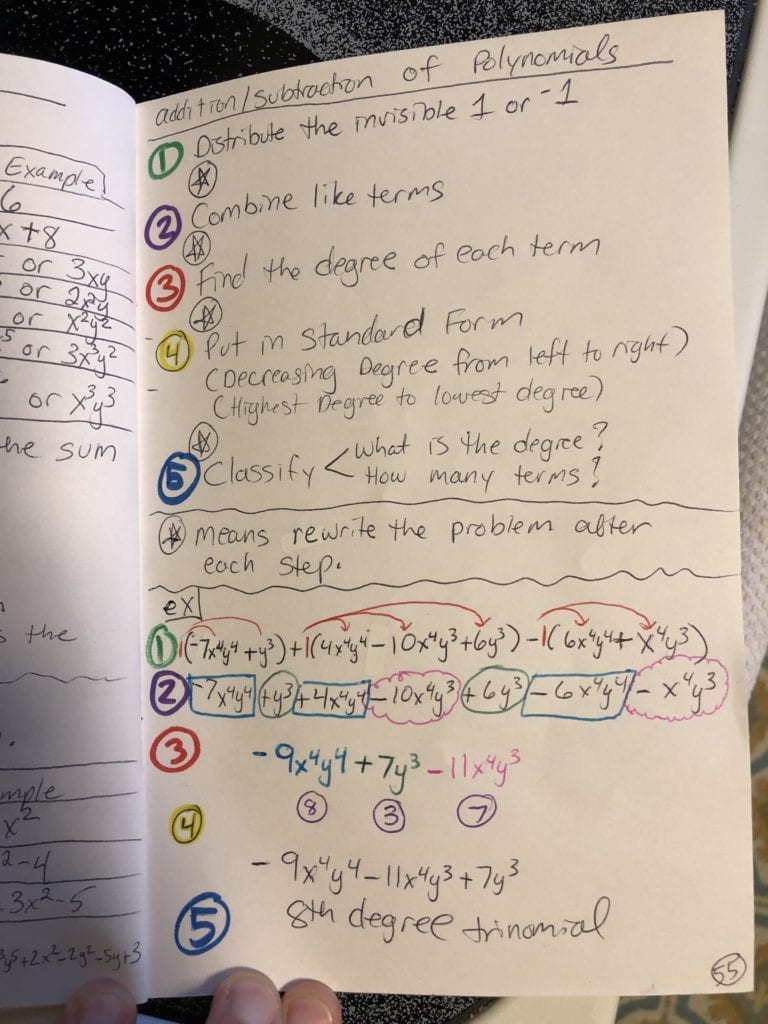 Example
6
x + 8
or 3xy
or 2x²y
or x²y²
or 3x³y²
or x³y³
the sum
s the
mple
x²
²-4
3x²-5
y⁵+2x²-2y²-5y+3
addition/subtraction of Polynomials
① Distribute the invisible 1 or ⁻1
☆
② Combine like terms
☆
③ Find the degree of each term
☆
④ Put in Standard Form
(Decreasing Degree from left to right)
(Highest Degree to lowest degree)
☆
⑤ Classify < What is the degree?
How many terms?
☆ means rewrite the problem after
each step.
ex
① 1(⁻7x⁴y⁴ + y³) + 1(4x⁴y⁴ - 10x⁴y³ + 6y³) - 1(6x⁴y⁴ + x⁴y³)
② ⁻7x⁴y⁴ + y³ + 4x⁴y⁴ - 10x⁴y³ + 6y³ - 6x⁴y⁴ - x⁴y³
③ -9x⁴y⁴ + 7y³ - 11x⁴y³
⑧ ③ ⑦
④
-9x⁴y⁴ - 11x⁴y³ + 7y³
⑤ 8th degree trinomial
55